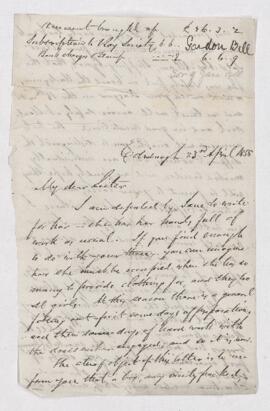 Amount brought up £ 26. 3. 2
Subscription to Ray Society 6 6
Gordon Bell
Edinburgh 23rd April 1855
My dear Sister
I am deputed by Jane to write
for her – she has her hands full of
work as usual. If you find enough
to do with your three, you can imagine
how she must be occupied when she has so
many to provide clothing for, and they too
all girls. At this season there is a general
out spirit some days of preparation,
and then some days of hard work with
the engaged, and so it is now.
The chief object of this letter is to in-
form you that a box, very nicely packed,